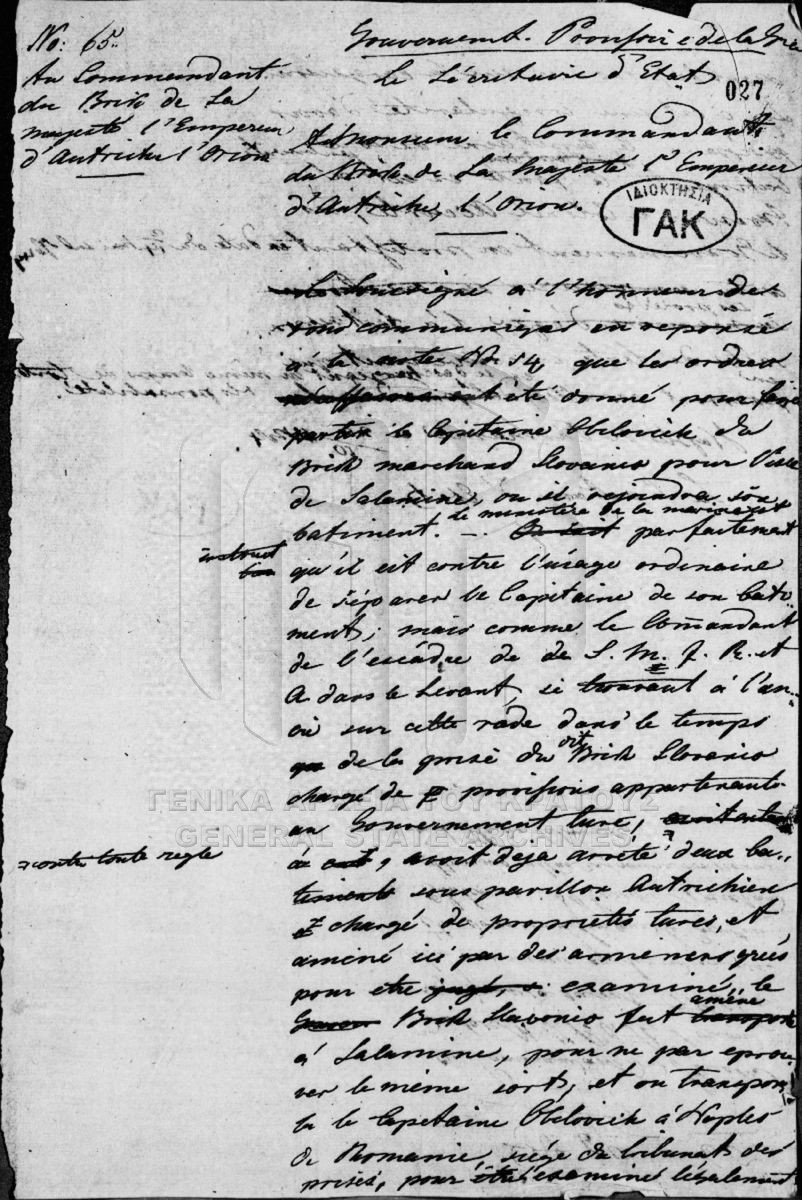 No: 65.
Au Commandant
du Brik de Sa
Majesté l'Empereur
d'Autriche l'Orion
Gouvernemt. Provisoire de la Grè
le Sécretaire d'Etat
027
A Monsieur le Commandant
du Brik de Sa Majesté l'Empereur
d'Autriche, l'Orion.
ΙΔΙΟΚΤΗΣ�IA
ΓΑΚ
Le Soussigné à l'honneur de
vous communiquer en reponse
à la note No 54, que les ordres
ont été donné pour faire
partir le Capitaine Obilovich du
Brik marchand Slavonio pour
de Salamine, ou il rejoindra son
batiment. — On sait parfaitement
le ministère de la marine est
instruit
qu'il est contre l'usage ordinaire
de séparer le Capitaine de son bati
ment; mais comme le Commandant
de l'escadre de de S. M. I. R. et
A dans le Levant, se trouvant à l'an-
cre sur cette rade dans le temps
de la prise du dit Brik Slavonio
chargé de provisions appartenant
au Gouvernement turc,
à, avoit deja arrêté deux ba-
contre toute regle
timents sous pavillon Autrichien
chargé de proprietés turcs, et
améné ici par des armemens grècs
pour etre examiné, le
Brik Slavonio fut transporté
amené
à Salamine, pour ne pas eprou
ver le même sort, et on transpor
ta le Capitaine Obilovich à Naples
de Romanie, siége du tribunal des
prises, pour être examiné légalement